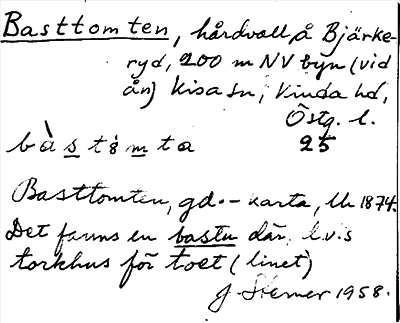 Basttomten, hårdvall, å Bjärke-
ryd, 200 m NV byn (vid
ån) Kisa sn, Kinda hd,
Östg. l.
bàstòmta 25
Basttomten, gd.-karta, LK 1874.
Det fanns en bastu där, l.v.s
torkhus för toet (linet)
J. Sterner 1958.